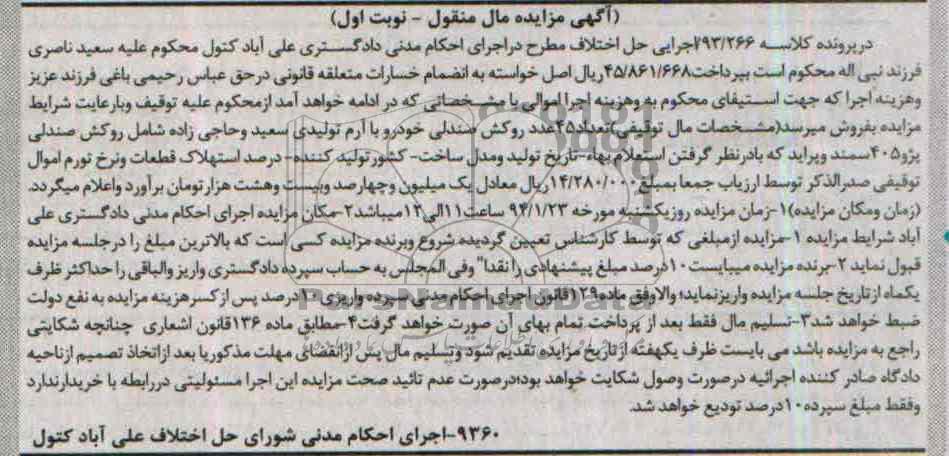 (آگهی مزایده مال منقول - نوبت اول)
درپرونده کلاسه ۹۳/۲۶۶اجرایی حل اختلاف مطرح دراجرای احکام مدنی دادگستری علی آباد کتول محکوم علیه سعید ناصری
فرزند نبی اله محکوم است بپرداخت۴۵/۸۶۱/۶۶۸ریال اصل خواسته به انضمام خسارات متعلقه قانونی درحق عباس رحیمی باغی فرزند عزیز
وهزینه اجرا که جهت استیفای محکوم به وهزینه اجرا اموالی با مشخصاتی که در ادامه خواهد آمد ازمحکوم علیه توقیف وبارعایت شرایط
مزایده بفروش میرسد(مشخصات مال توقیفی)تعداد۴۵عدد روکش صندلی خودرو با آرم تولیدی سعید وحاجی زاده شامل روکش صندلی
پژو۴۰۵سمند وپراید که بادرنظر گرفتن استعلام بهاء-تاریخ تولید ومدل ساخت- کشورتولید کننده- درصد استهلاک قطعات ونرخ تورم اموال
توقیفی صدرالذکر توسط ارزیاب جمعا بمبلغ۱۴/۲۸۰/۰۰۰ریال معادل یک میلیون وچهارصد وبیست وهشت هزارتومان برآورد واعلام میگردد.
(زمان ومکان مزایده)۱-زمان مزایده روزیکشنبه مورخه ۹۴/۱/۲۳ ساعت۱۱الی۱۲میباشد۲-مکان مزایده اجرای احکام مدنی دادگستری علی
آباد شرایط مزایده ۱-مزایده ازمبلغی که توسط کارشناس تعیین گردیده شروع وبرنده مزایده کسی است که بالاترین مبلغ را درجلسه مزایده
قبول نماید ۲-برنده مزایده میبایست۱۰درصد مبلغ پیشنهادی را نقدا" وفی المجلس به حساب سپرده دادگستری واریز والباقی را حداکثر ظرف
یکماه ازتاریخ جلسه مزایده واریزنماید؛ والاوفق ماده۱۲۹قانون اجرای احکام مدنی سپرده واریزی ۱۰درصد پس ازکسرهزینه مزایده به نفع دولت
ضبط خواهد شد۳-تسلیم مال فقط بعد از پرداخت تمام بهای آن صورت خواهد گرفت۴-مطابق ماده ۱۳۶قانون اشعاری چنانچه شکایتی
راجع به مزایده باشد می بایست ظرف یکهفته ازتاریخ مزایده تقدیم شود وتسلیم مال پس ازانقضای مهلت مذکوریا بعد ازاتخاذ تصمیم ازناحیه
دادگاه صادر کننده اجرائیه درصورت وصول شکایت خواهد بود؛درصورت عدم تائید صحت مزایده این اجرا مسئولیتی دررابطه با خریدارندارد
وفقط مبلغ سپرده۱۰درصد تودیع خواهد شد.
۹۳۶۰-اجرای احکام مدنی شورای حل اختلاف علی آباد کتول